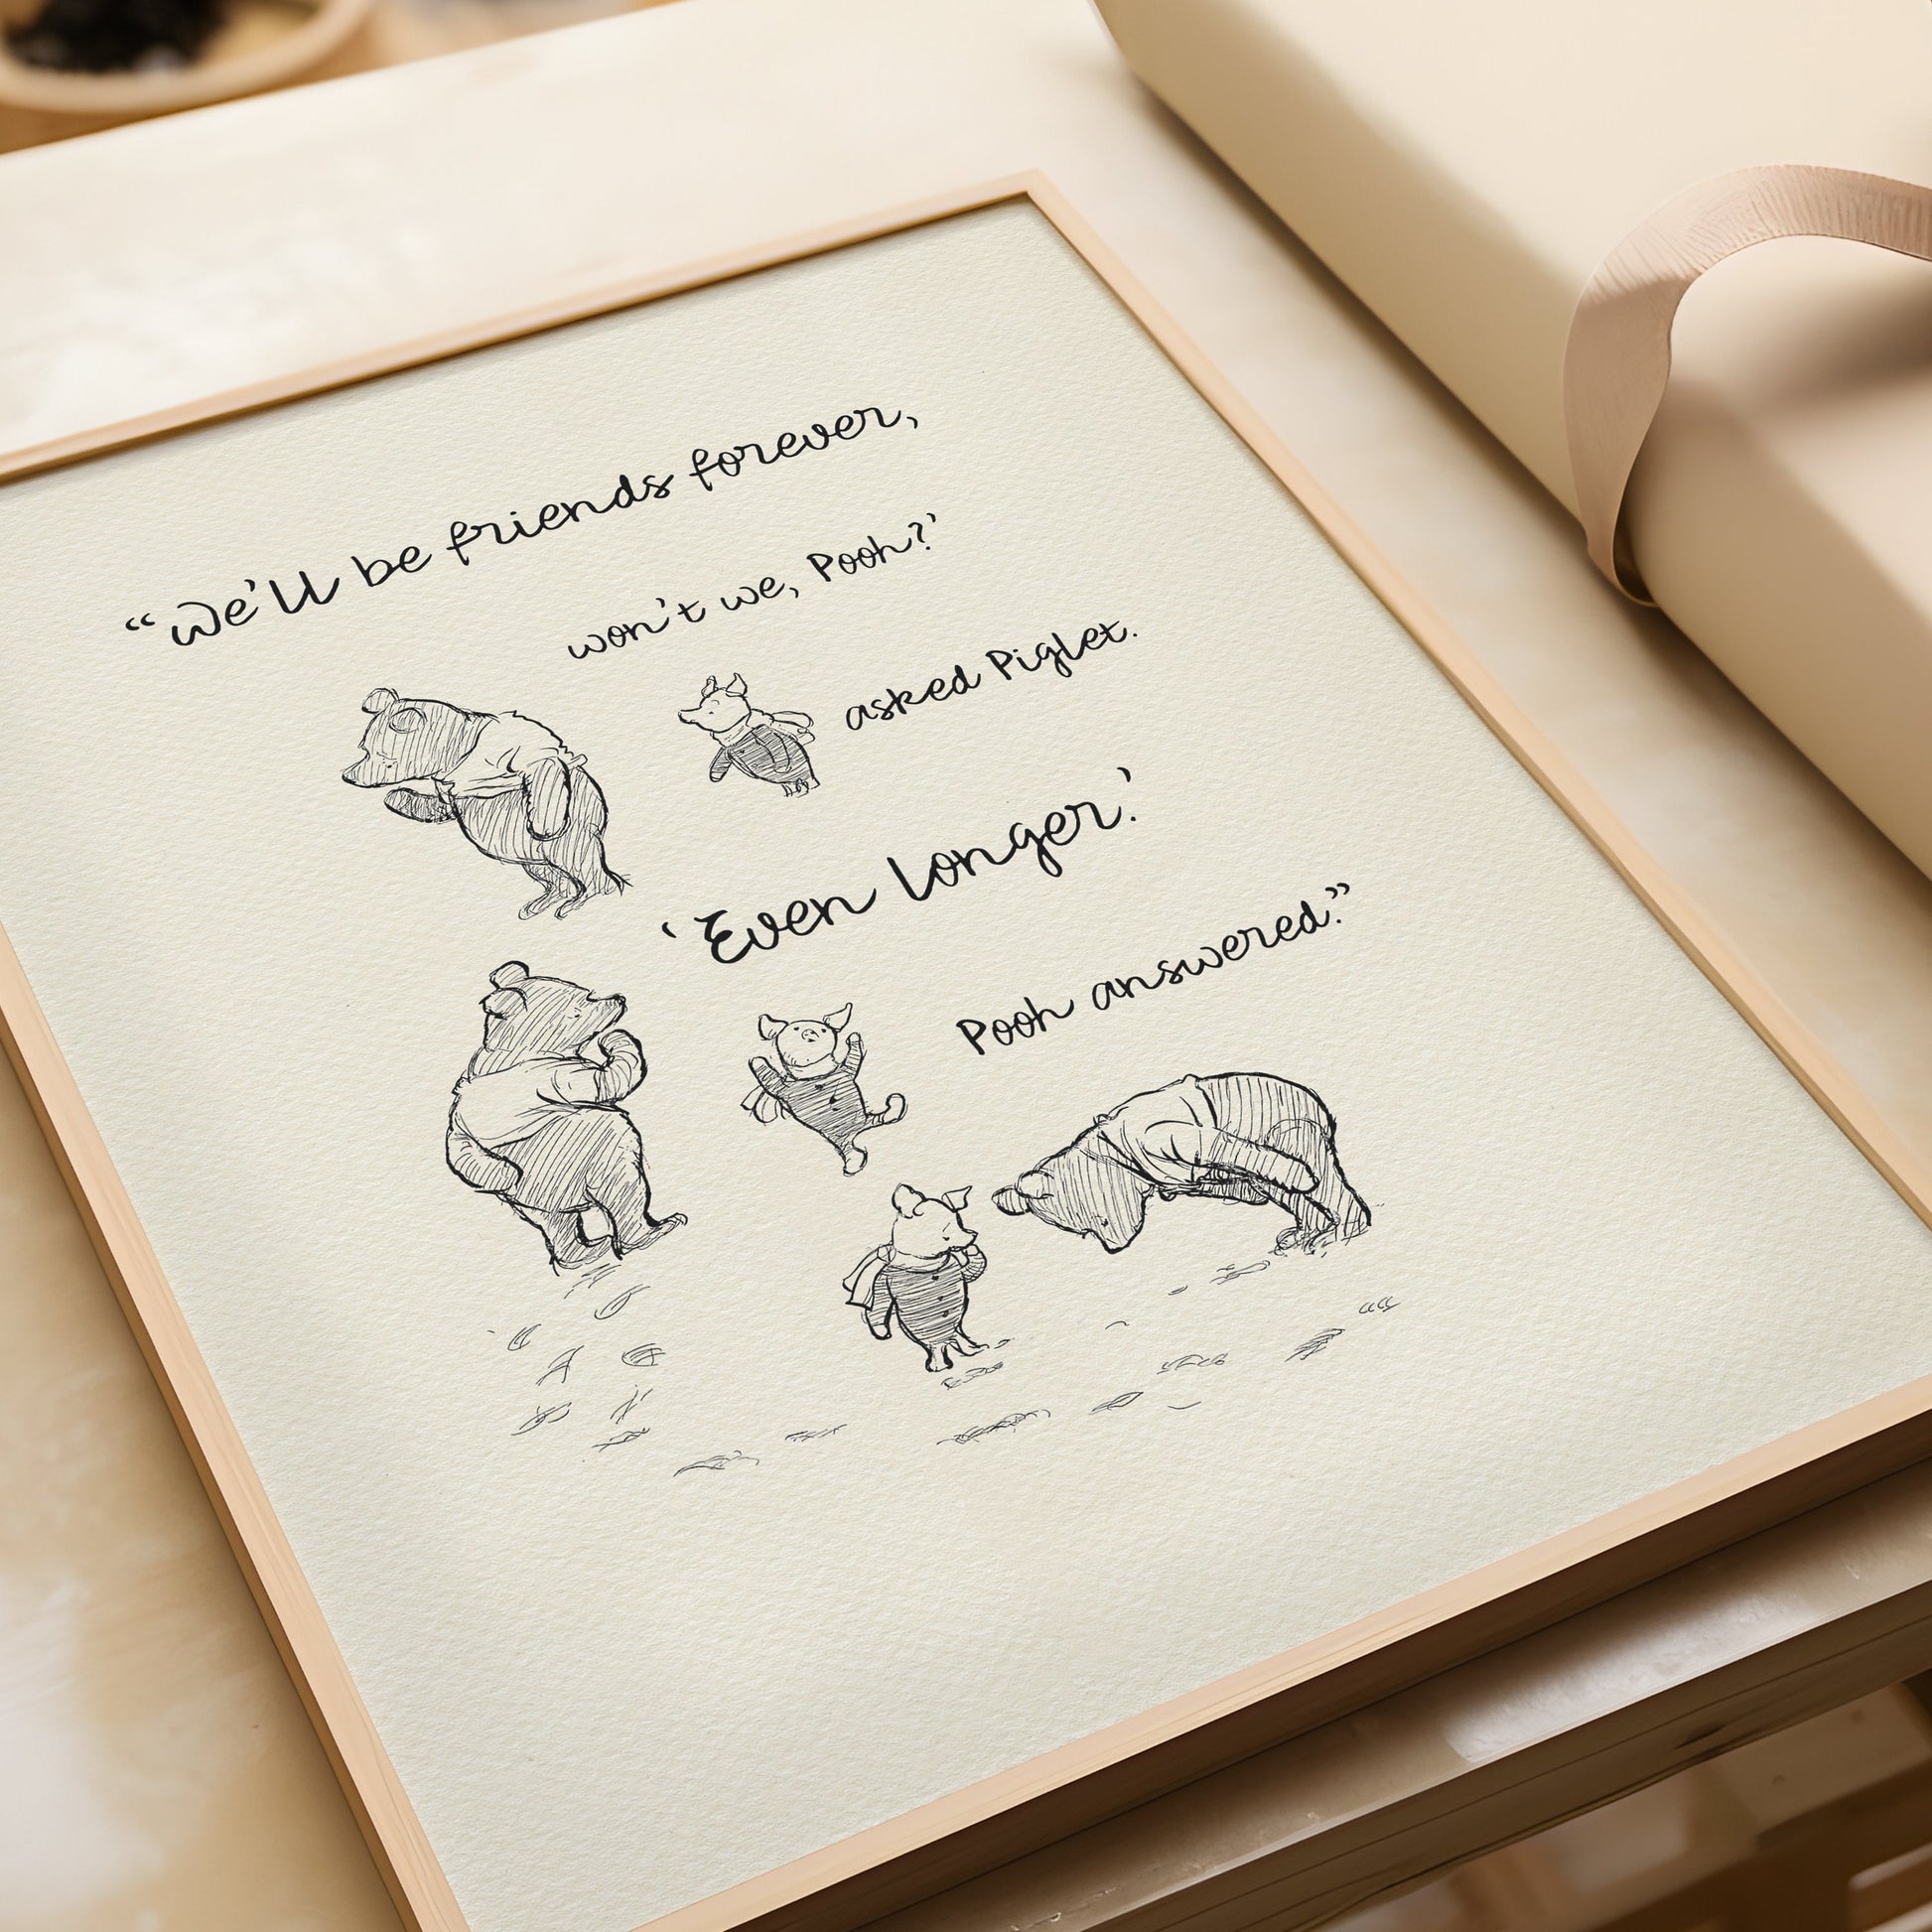 “We’ll be friends forever,
won’t we, Pooh?’
asked Piglet.
‘Even longer.’
Pooh answered.”